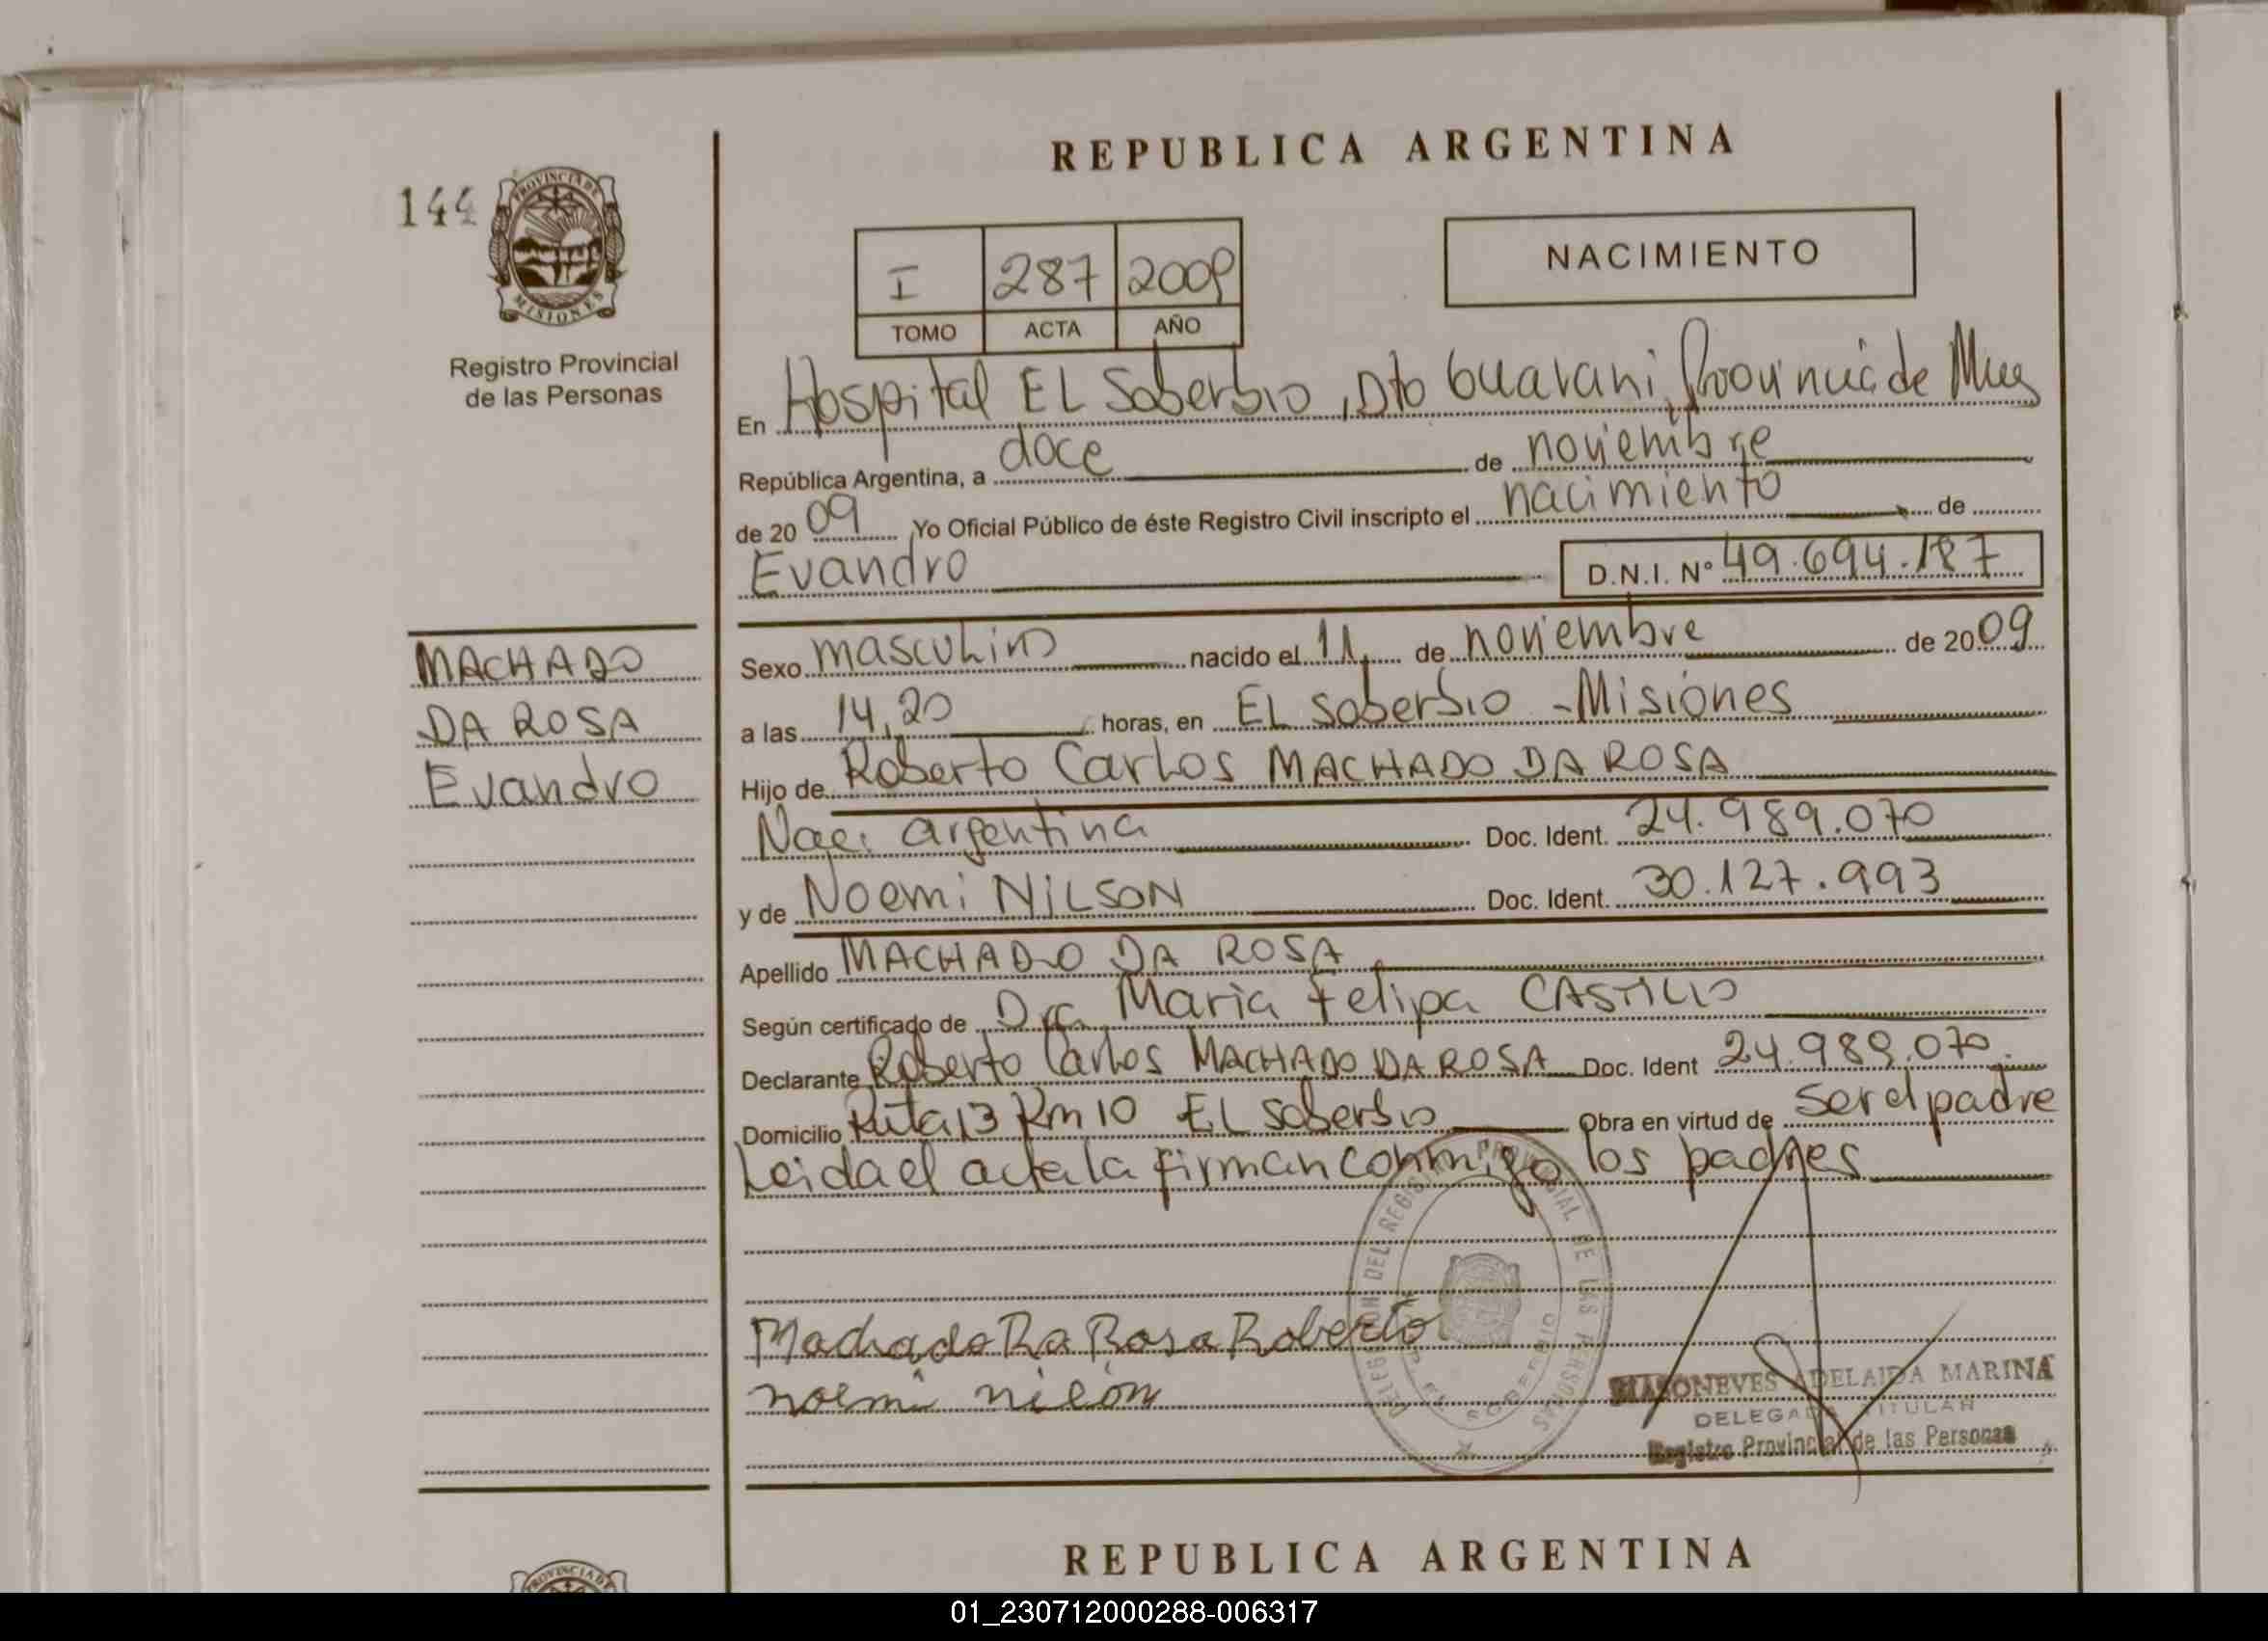 REPUBLICA ARGENTINA
144
PROVINCIA DE
MISIONES
Registro Provincial
de las Personas
I 287 2009
TOMO ACTA AÑO
NACIMIENTO
En Hospital EL Soberbio, Dto Guarani, Provincia de Mnes
República Argentina, a doce de noviembre
de 2009 Yo Oficial Público de éste Registro Civil inscripto el nacimiento de
Evandro D.N.I. Nº 49.694.187
MACHADO
DA ROSA
Evandro
Sexo masculino nacido el 11 de noviembre de 2009
a las 14,20 horas, en EL Soberbio - Misiones
Hijo de Roberto Carlos MACHADO DA ROSA
Nac. argentina Doc. Ident. 24.989.070
y de Noemi NILSON Doc. Ident. 30.127.993
Apellido MACHADO DA ROSA
Según certificado de Dra. Maria Felipa CASTILLO
Declarante Roberto Carlos MACHADO DA ROSA Doc. Ident 24.989.070
Domicilio Ruta 13 Km 10 EL Soberbio Obra en virtud de ser el padre
Leida el acta la firman conmigo los padres
DELEGACION DEL REGISTRO PROVINCIAL DE LAS PERSONAS
EL SOBERBIO
Machado Da Rosa Roberto
noemi nilson
ADELAIDA MARINA
DELEGADA TITULAR
Registro Provincial de las Personas
REPUBLICA ARGENTINA
PROVINCIA DE
01_230712000288-006317